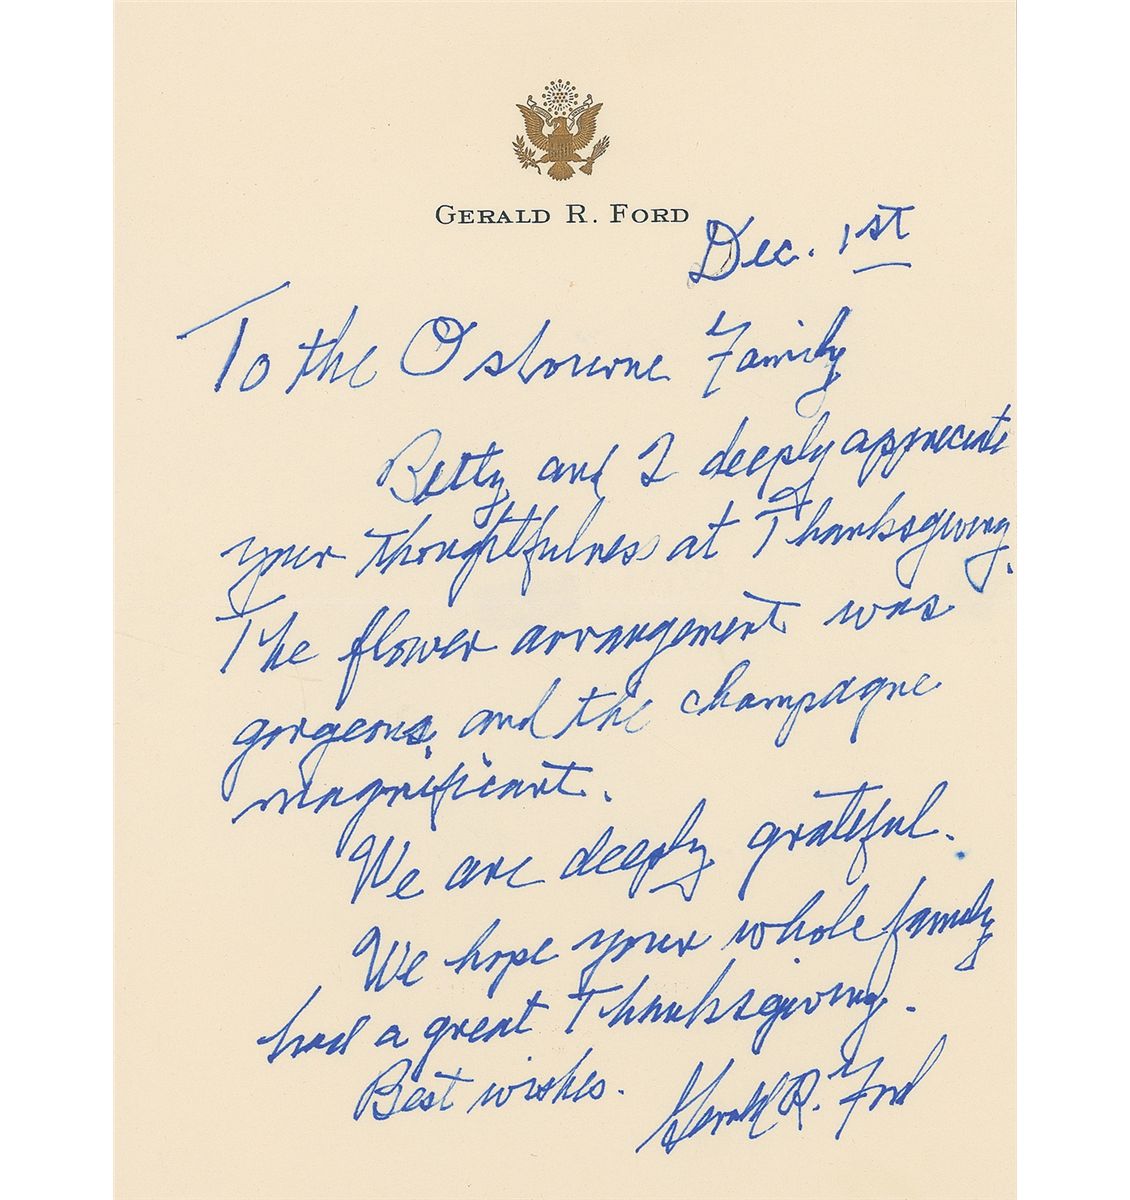 GERALD R. FORD
Dec. 1st
To the Osbourne Family
Betty and I deeply appreciate
your thoughtfulness at Thanksgiving.
The flower arrangement was
gorgeous, and the champagne
magnificent.
We are deeply grateful.
We hope your whole family
had a great Thanksgiving.
Best wishes.
Gerald R. Ford